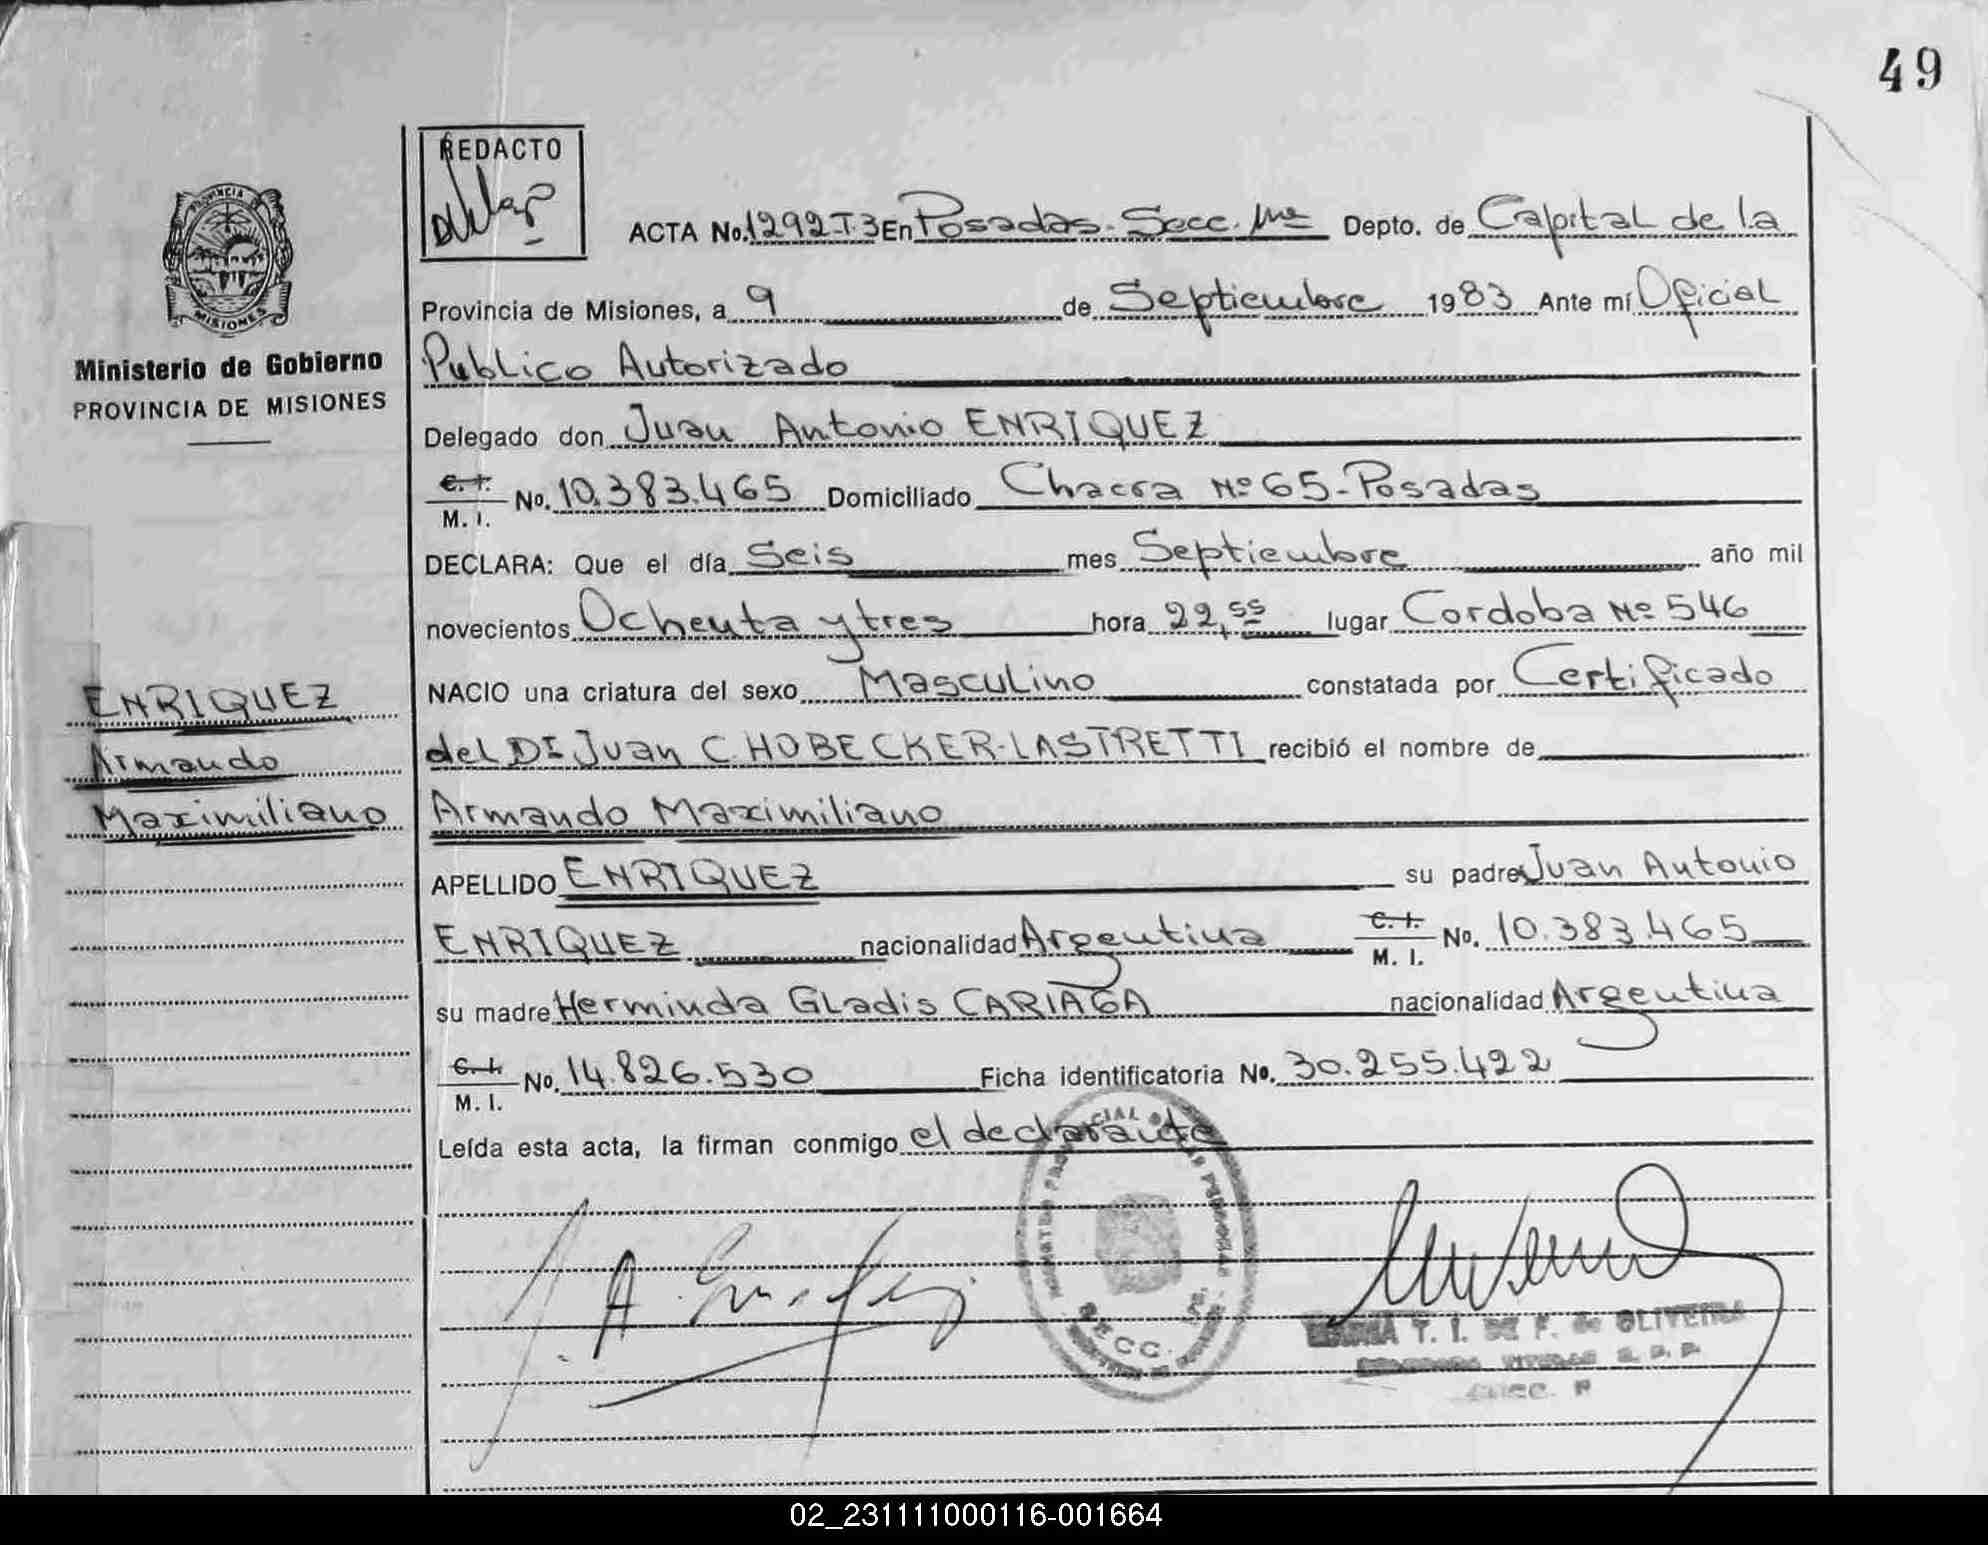 49
REDACTO
ACTA No. 1292-T.3 En Posadas-Secc. 1ra Depto. de Capital de la
Provincia de Misiones, a 9 de Septiembre 1983 Ante mí Oficial
Publico Autorizado
Delegado don Juan Antonio ENRIQUEZ
C. I. M. I. No. 10.383.465 Domiciliado Chacra Nº 65-Posadas
DECLARA: Que el día Seis mes Septiembre año mil
novecientos Ochenta y tres hora 22,55 lugar Cordoba Nº 546
NACIO una criatura del sexo Masculino constatada por Certificado
del Dr Juan C. HOBECKER-LASTRETTI recibió el nombre de
Armando Maximiliano
APELLIDO ENRIQUEZ su padre Juan Antonio
ENRIQUEZ nacionalidad Argentina C. I. M. I. No. 10.383.465
su madre Herminda Gladis CARIAGA nacionalidad Argentina
C. I. M. I. No. 14.826.530 Ficha identificatoria No. 30.255.422
Leída esta acta, la firman conmigo el declarante
PROVINCIA
MISIONES
Ministerio de Gobierno
PROVINCIA DE MISIONES
ENRIQUEZ
Armando
Maximiliano
SECC.
T. I. DE F. de OLIVEIRA
02_231111000116-001664